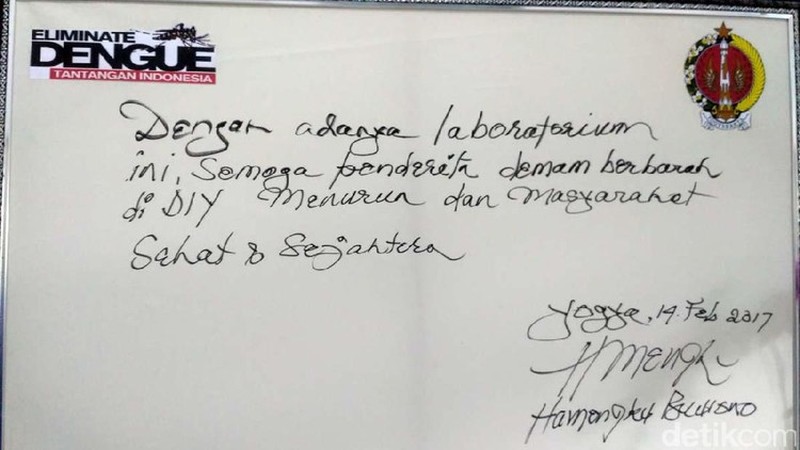 ELIMINATE
DENGUE
TANTANGAN INDONESIA
Dengan adanya laboratorium
ini, Semoga penderita demam berbarah
di DIY Menurun dan Masyarakat
Sehat & Sejahtera
Yogya, 14 Feb 2017
Hamengku Buwono
detikcom